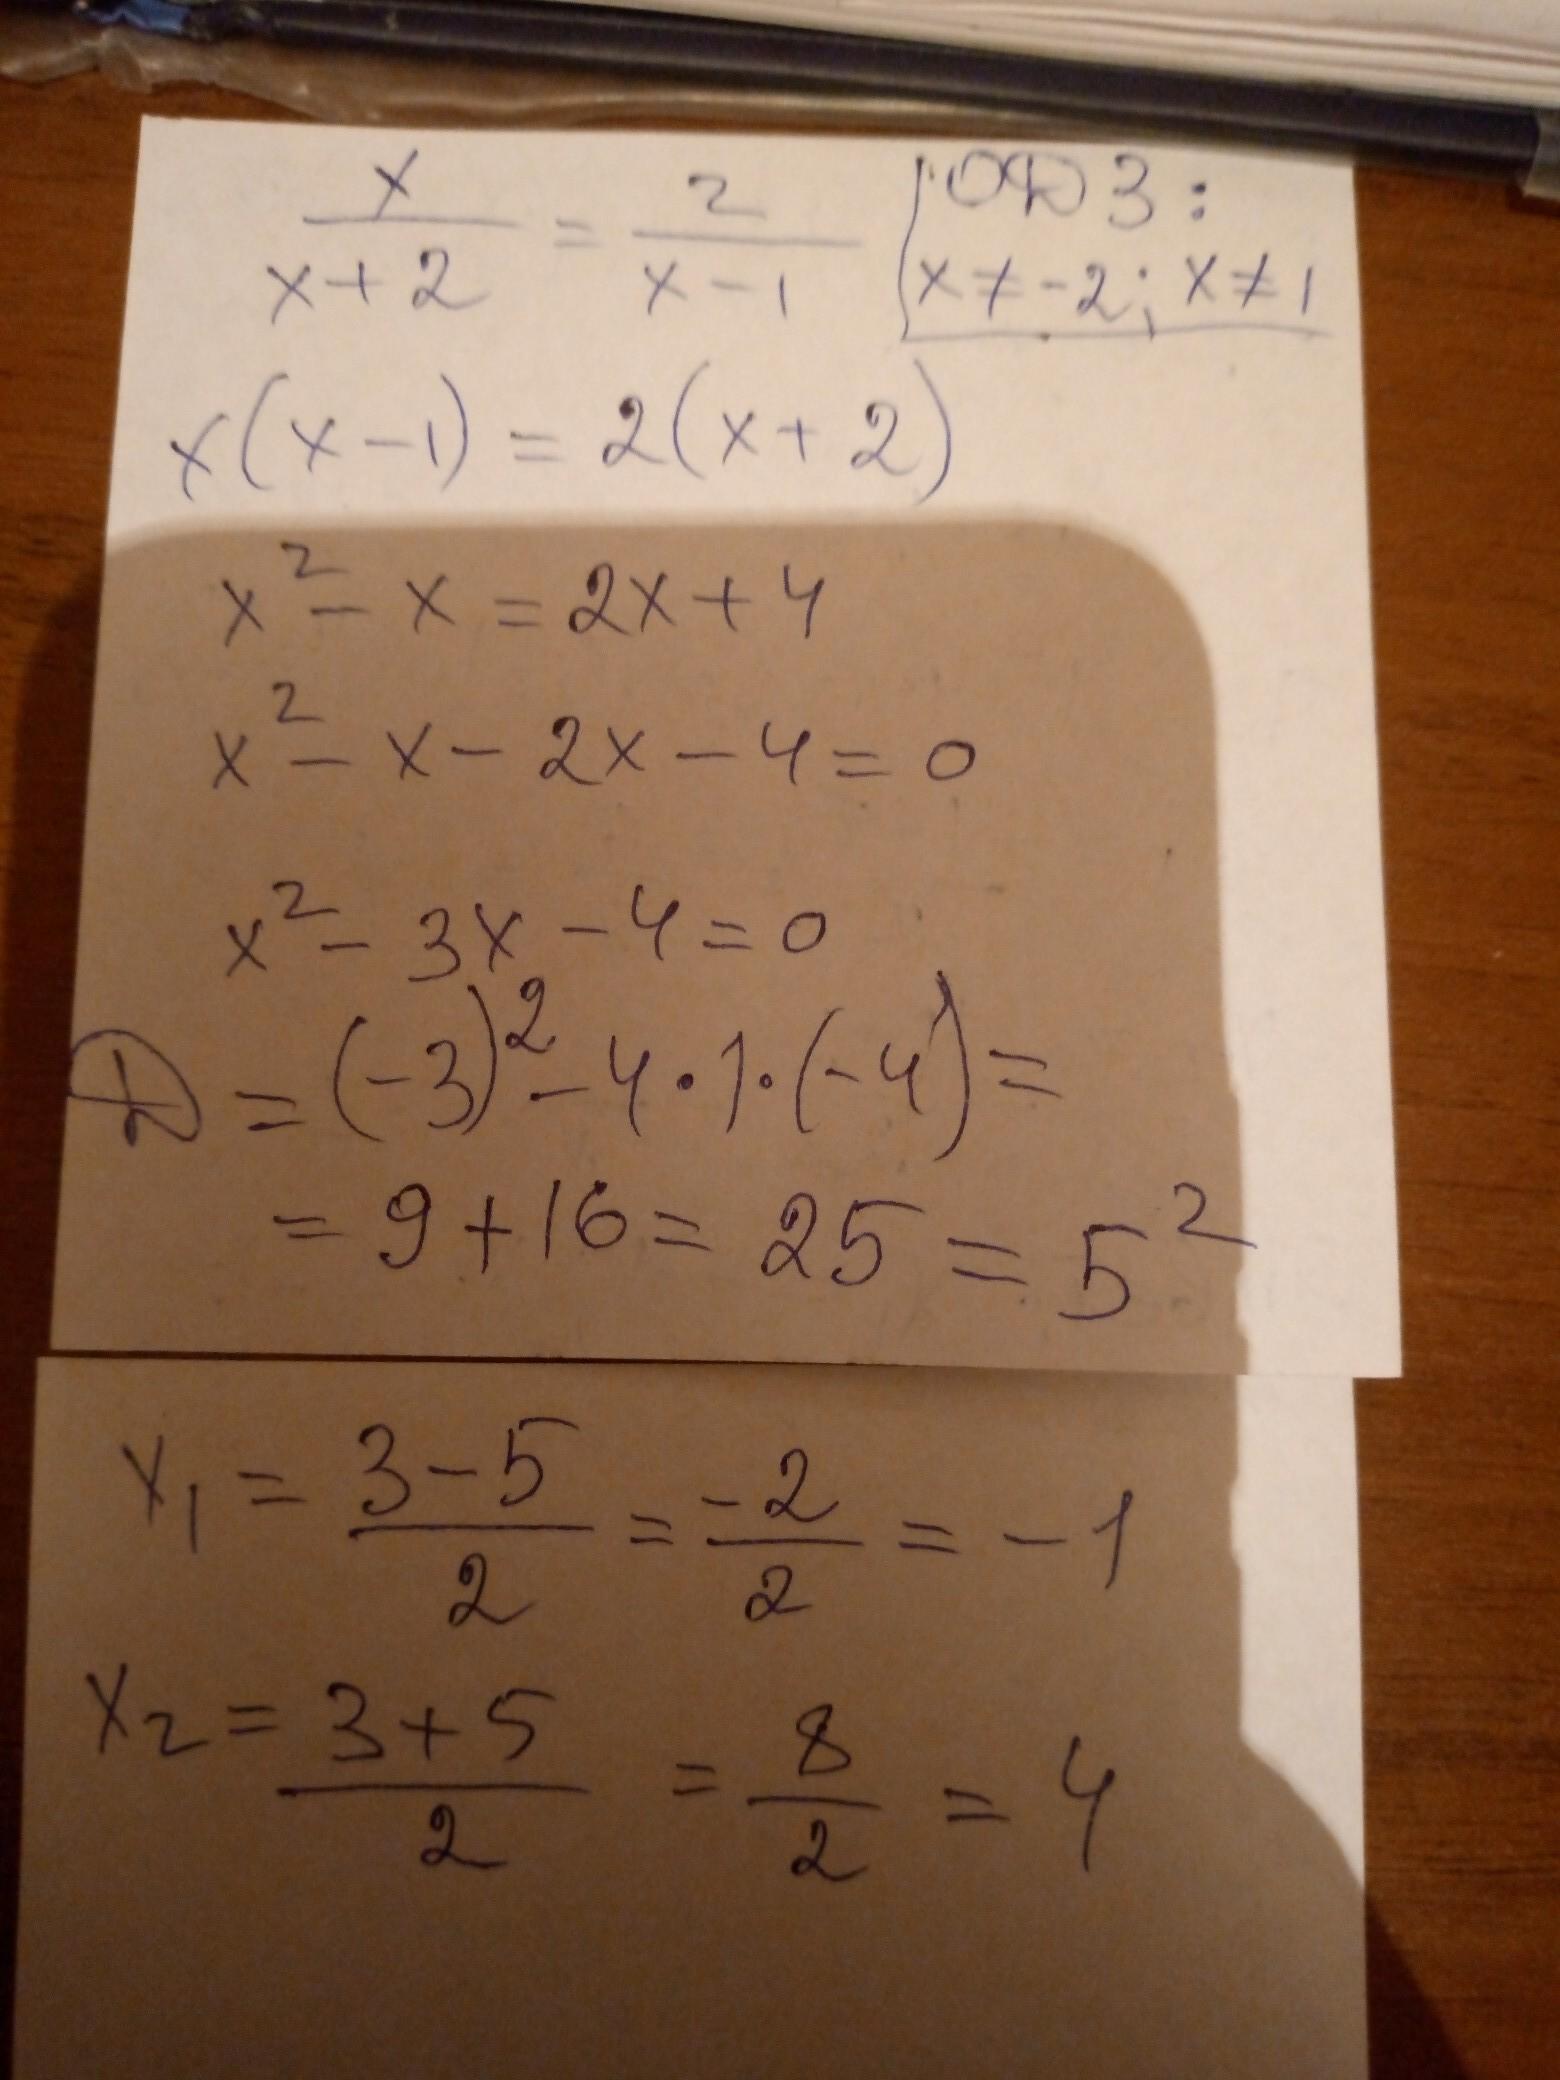 x/(x+2) = 2/(x-1) ОДЗ:
x≠-2; x≠1
x(x-1) = 2(x+2)
x² - x = 2x + 4
x² - x - 2x - 4 = 0
x² - 3x - 4 = 0
D = (-3)² - 4·1·(-4) =
= 9 + 16 = 25 = 5²
x₁ = (3-5)/2 = -2/2 = -1
x₂ = (3+5)/2 = 8/2 = 4